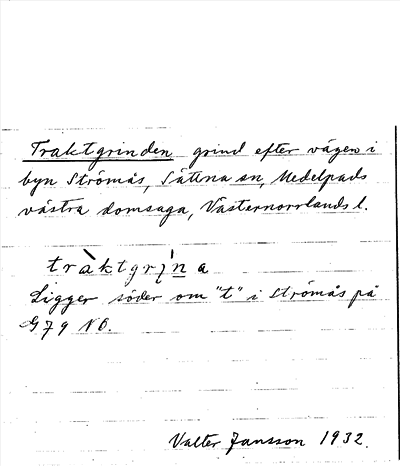 Traktgrinden, grind efter vägen i
byn Strömås, Sättna sn, Medelpads
västra domsaga, Västernorrlands l.
tràktgrı̨̀n̲a
Ligger söder om "t" i Strömås på
G 79 NO.
Valter Jansson 1932.